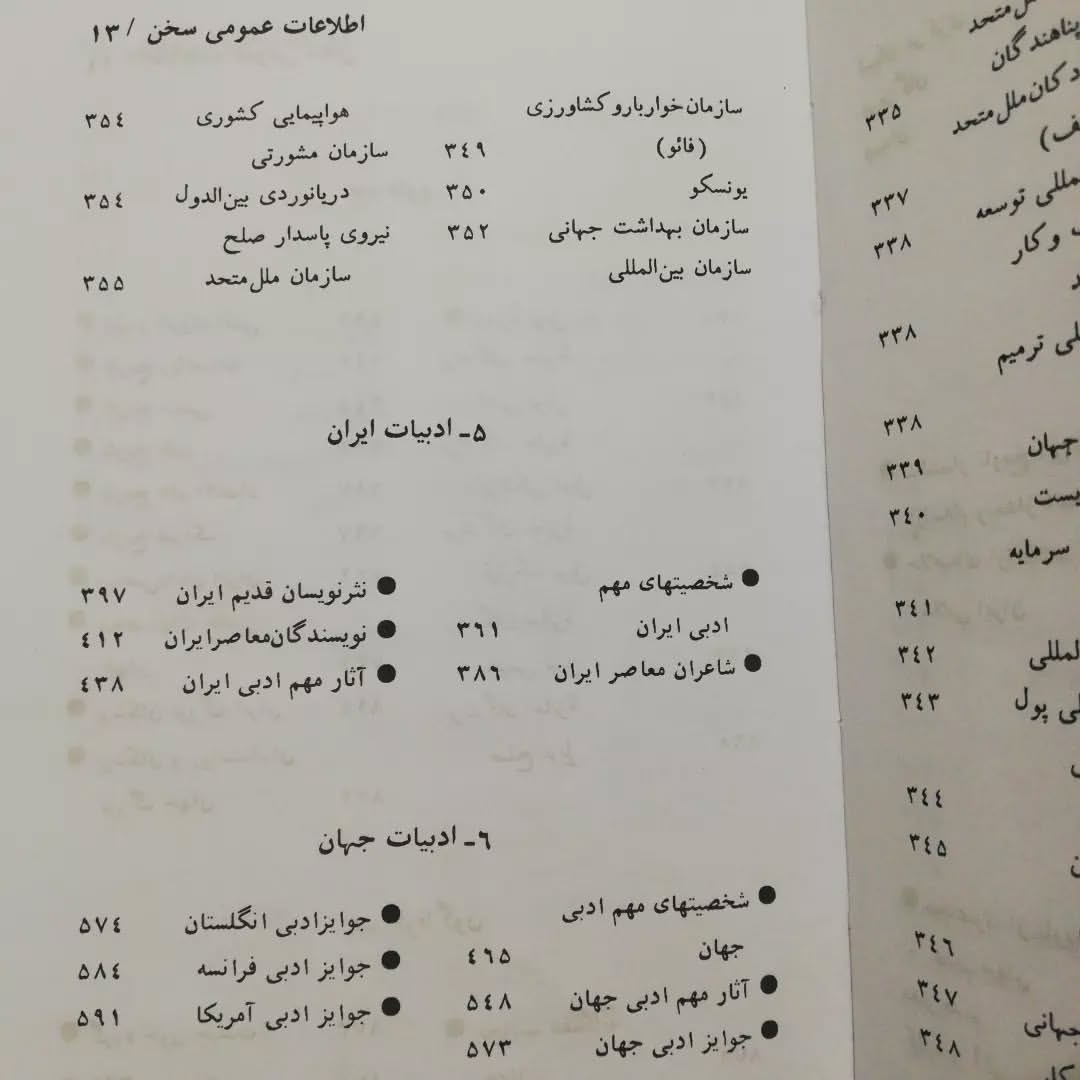 اطلاعات عمومی سخن / ۱۳
سازمان خواربار و کشاورزی
(فائو) ۳۴۹
یونسکو ۳۵۰
سازمان بهداشت جهانی ۳۵۲
سازمان بین‌المللی
هواپیمایی کشوری ۳۵۴
سازمان مشورتی
دریانوردی بین‌الدول ۳۵۴
نیروی پاسدار صلح
سازمان ملل‌متحد ۳۵۵
۵ـ ادبیات ایران
● شخصیتهای مهم
ادبی ایران ۳۶۱
● شاعران معاصر ایران ۳۸۶
● نثرنویسان قدیم ایران ۳۹۷
● نویسندگان معاصر ایران ۴۱۲
● آثار مهم ادبی ایران ۴۳۸
۶ـ ادبیات جهان
● شخصیتهای مهم ادبی
جهان ۴۶۵
● آثار مهم ادبی جهان ۵۴۸
● جوایز ادبی جهان ۵۷۳
● جوایز ادبی انگلستان ۵۷۴
● جوایز ادبی فرانسه ۵۸۴
● جوایز ادبی آمریکا ۵۹۱
ملل‌متحد
پناهندگان
کان ملل متحد ۳۳۵
توسعه ۳۳۷
و کار ۳۳۸
ترمیم ۳۳۸
۳۳۸
جهان ۳۳۹
۳۴۰
سرمایه
۳۴۱
۳۴۲
پول ۳۴۳
۳۴۴
۳۴۵
۳۴۶
۳۴۷
جهانی
۳۴۸